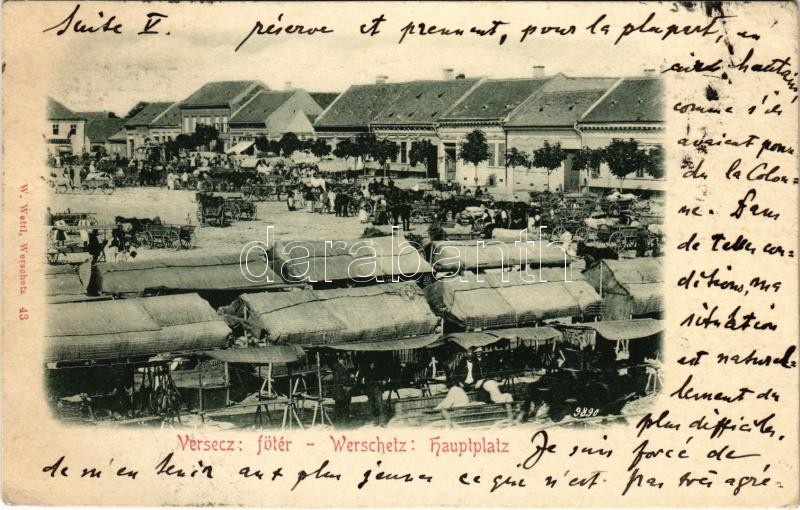 Suite V. réserve et prennent, pour la plupart, un
air hautain,
comme s'ils
avaient peur
du la Colon-
ne. Dans
de telles con-
ditions, ma
situation
est naturel-
lement du
plus difficiles.
Je suis forcé de
de m'en tenir aux plus jeunes ce qui n'est pas très agré-
W. Wettl, Werschetz. 43
darabanth
9890
Versecz: főtér - Werschetz: Hauptplatz